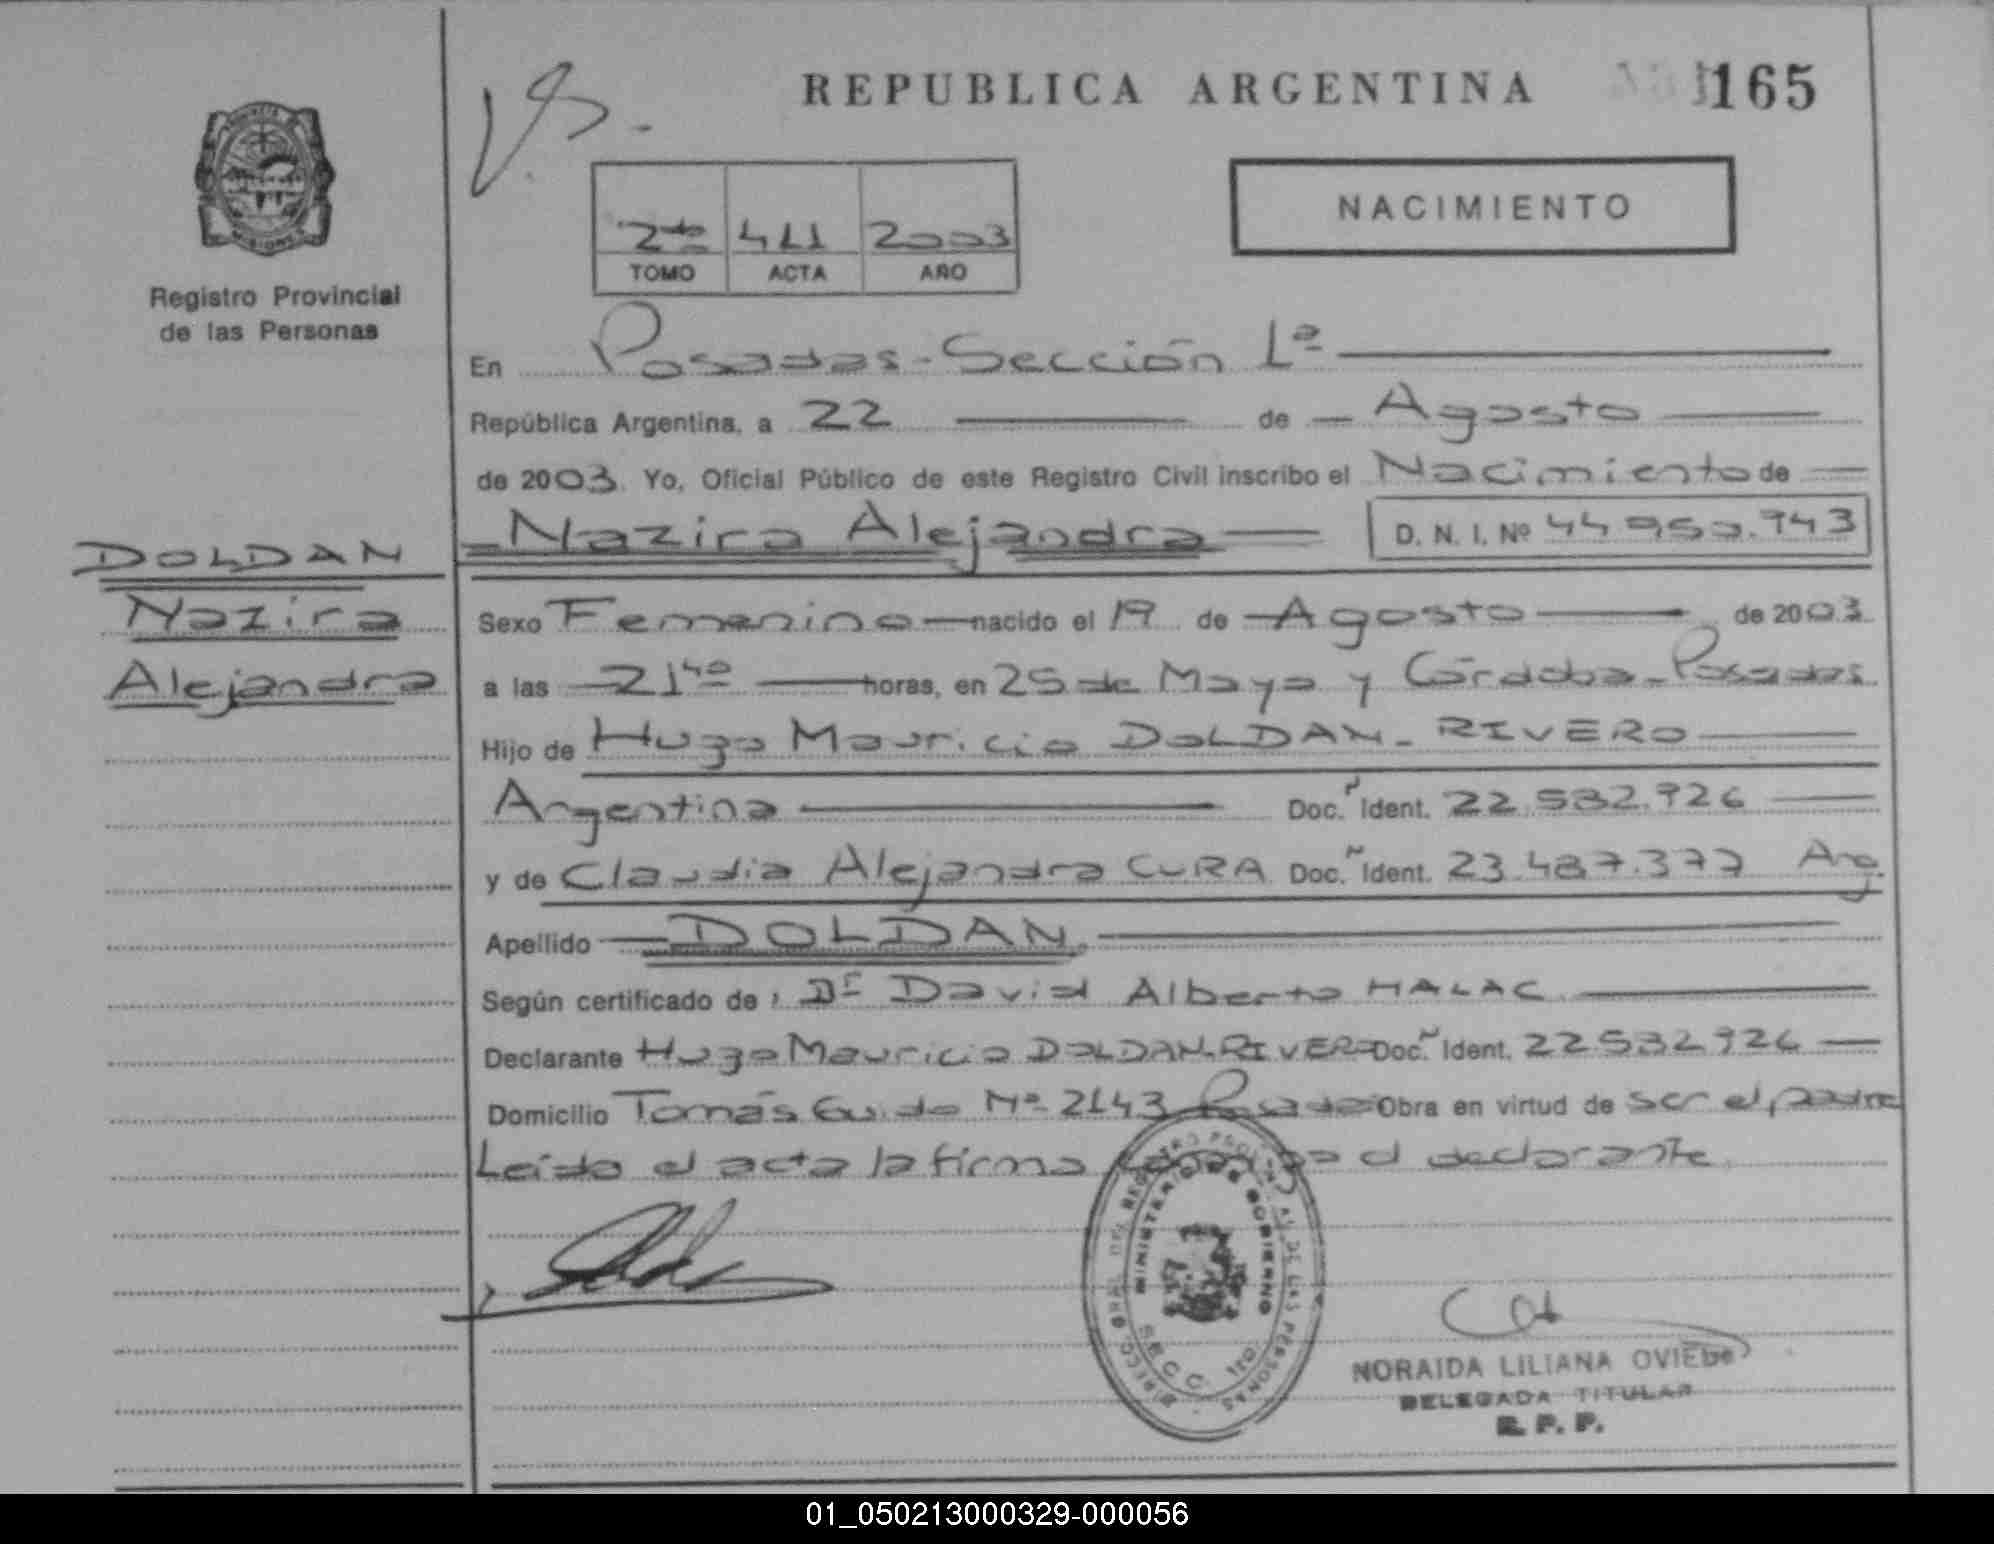 REPUBLICA ARGENTINA
165
PROVINCIA DE
MISIONES
Registro Provincial
de las Personas
2do 411 2003
TOMO ACTA AÑO
NACIMIENTO
En Posadas - Sección 1ª
República Argentina, a 22 de Agosto
de 2003. Yo, Oficial Público de este Registro Civil inscribo el Nacimiento de
Nazira Alejandra D. N. I. Nº 44.950.943
DOLDAN
Nazira
Alejandra
Sexo Femenino nacido el 19 de Agosto de 2003
a las 21 40 horas, en 25 de Mayo y Córdoba - Posadas
Hijo de Hugo Mauricio DOLDAN - RIVERO
Argentina Doc. Ident. 22.532.926
y de Claudia Alejandra CURA Doc. Ident. 23.487.377 Arg.
Apellido DOLDAN
Según certificado de Dr David Alberto HALAC
Declarante Hugo Mauricio DOLDAN - RIVERO Doc. Ident. 22532926
Domicilio Tomás Guido Nº 2143 Posadas Obra en virtud de ser el padre
Leída el acta la firma el declarante.
MINISTERIO DE GOBIERNO
SECC. 1ro.
NORAIDA LILIANA OVIEDO
DELEGADA TITULAR
R. P. P.
01_050213000329-000056